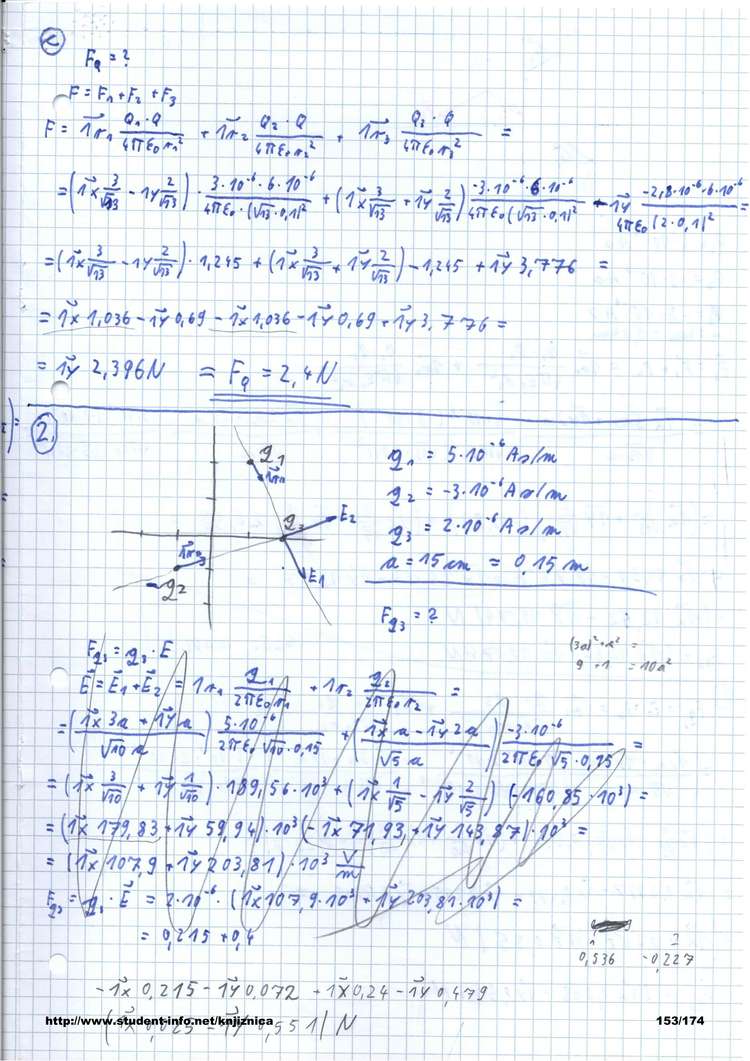 c
F_Q = ?
F = F₁ + F₂ + F₃
F = 1⃗r₁ Q₁·Q / 4πε₀r₁² + 1⃗r₂ Q₂·Q / 4πε₀r₂² + 1⃗r₃ Q₃·Q / 4πε₀r₃² =
= (1⃗x 3/√13 − 1⃗y 2/√13) · 3·10⁻⁶·6·10⁻⁶ / 4πε₀·(√13·0,1)² + (1⃗x 3/√13 + 1⃗y 2/√13) −3·10⁻⁶·6·10⁻⁶ / 4πε₀(√13·0,1)² − 1⃗y −2,8·10⁻⁶·6·10⁻⁶ / 4πε₀(2·0,1)² =
= (1⃗x 3/√13 − 1⃗y 2/√13)·1,245 + (1⃗x 3/√13 + 1⃗y 2/√13) − 1,245 + 1⃗y 3,776 =
= 1⃗x 1,036 − 1⃗y 0,69 − 1⃗x 1,036 − 1⃗y 0,69 + 1⃗y 3,776 =
= 1⃗y 2,396 N = F_Q = 2,4 N
2.
q1
1⃗r₁
q3
E2
1⃗r₂
E1
−q2
q₁ = 5·10⁻⁶ As/m
q₂ = −3·10⁻⁶ As/m
q₃ = 2·10⁻⁶ As/m
a = 15 cm = 0,15 m
F_q₃ = ?
(3a)² + a² =
9 + 1 = 10a²
F_q₃ = q₃ · E
E⃗ = E⃗₁ + E⃗₂ = 1r₁ q₁ / 2πε₀r₁ + 1r₂ q₂ / 2πε₀r₂ =
= (1⃗x 3a + 1⃗y a / √10 a) 5·10⁻⁶ / 2πε₀ √10·0,15 + (1⃗x a − 1⃗y 2a / √5 a) −3·10⁻⁶ / 2πε₀ √5·0,15 =
= (1⃗x 3/√10 + 1⃗y 1/√10)·189,56·10³ + (1⃗x 1/√5 − 1⃗y 2/√5) (−160,85·10³) =
= (1⃗x 179,83 + 1⃗y 59,94)·10³ (−1⃗x 71,93 + 1⃗y 143,87)·10³ =
= (1⃗x 107,9 + 1⃗y 203,81)·10³ V/m
F_q₃ = q₃ · E⃗ = 2·10⁻⁶ · (1⃗x 107,9·10³ + 1⃗y 203,81·10³) =
= 0,215 + 0,4
0,536 −0,227
−1⃗x 0,215 − 1⃗y 0,072 + 1⃗x 0,24 − 1⃗y 0,479
(1⃗x 0,025 − 1⃗y 0,551) N
http://www.student-info.net/knjiznica
153/174